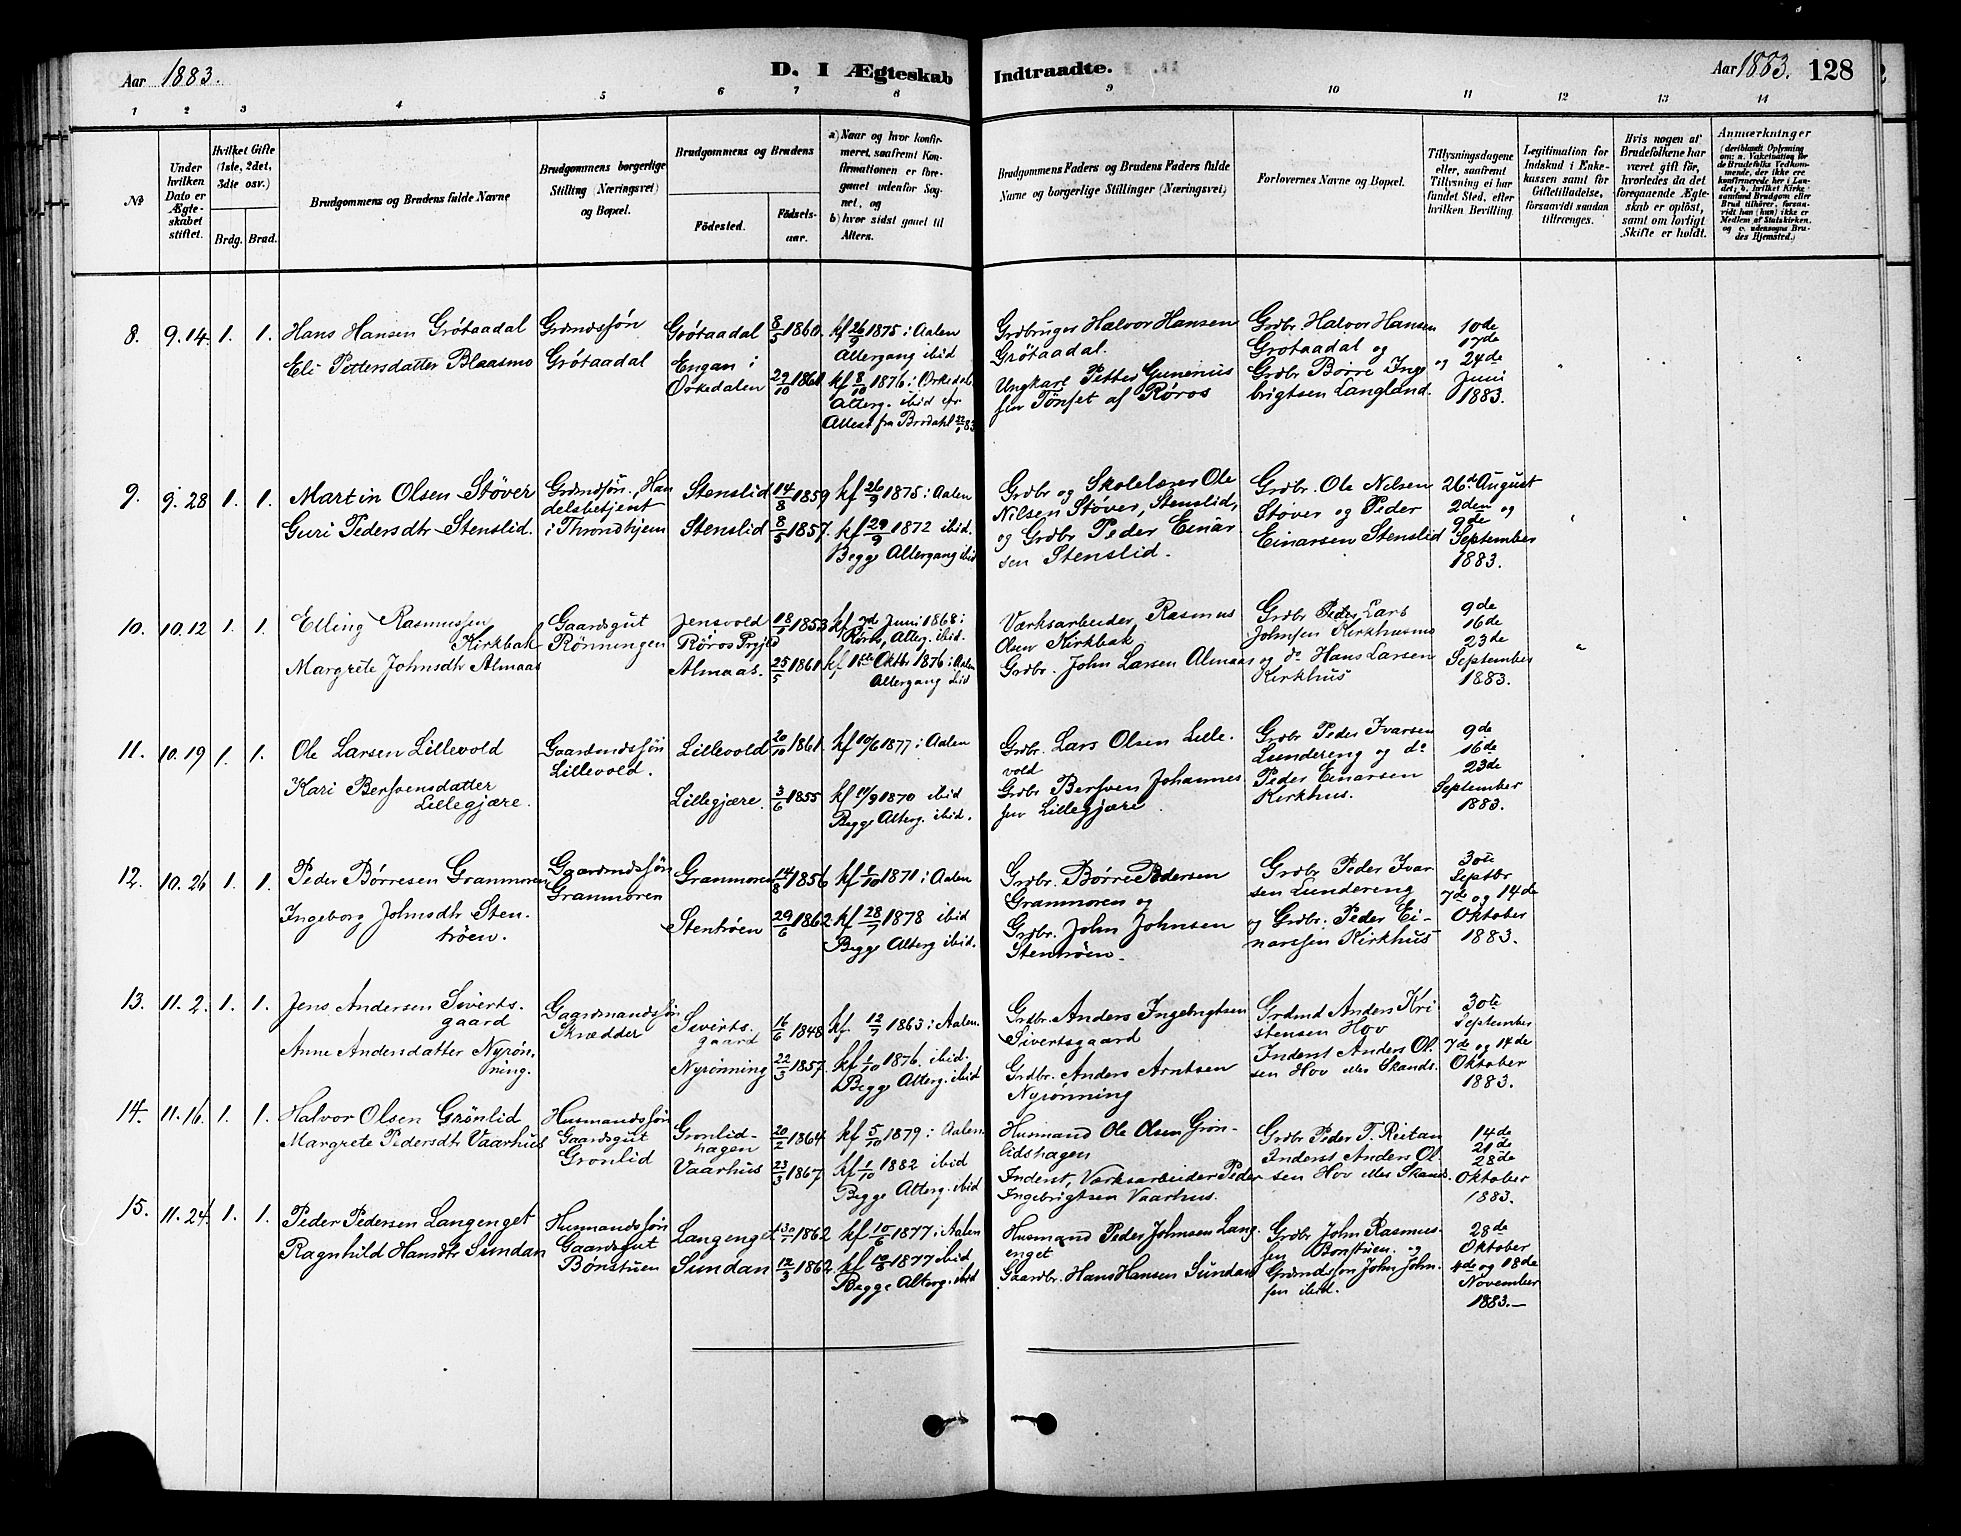 Aar 1883.
D. I Ægteskab Indtraadte.
Aar 1883. 128
1 2 3 4 5 6 7 8 9 10 11 12 13 14
No
Under hvilken Dato er Ægteskabet stiftet.
Hvilket Gifte (1ste, 2det, 3die osv.)
Brdg. Brud.
Brudgommens og Brudens fulde Navne
Brudgommens borgerlige Stilling (Næringsvei) og Bopæl.
Brudgommens og Brudens
Fødested.
Fødselsaar.
a) Naar og hvor konfirmeret, saafremt Konfirmationen er foregaaet udenfor Sognet, og
b) hvor sidst gaaet til Alters.
Brudgommens Faders og Brudens Faders fulde Navne og borgerlige Stillinger (Næringsvei)
Forlovernes Navne og Bopæl.
Tillysningsdagene eller, saafremt Tillysning ei har fundet Sted, efter hvilken Bevilling.
Legitimation for Indskud i Enkekassen samt for Giftetilladelse, forsaavidt saadan tiltrænges.
Hvis nogen af Brudefolkene har været gift før, hvorledes da det foregaaende Ægteskab er opløst, samt om lovligt Skifte er holdt.
Anmærkninger (deriblandt Oplysning om: a. Vakcination for de Brudefolks Vedkommende, der ikke ere konfirmerede her i Landet; b. hvilket Kirkesamfund Brudgom eller Brud tilhører, forsaavidt han (hun) ikke er Medlem af Statskirken, og c. udensogns Brudes Hjemsted.)
8. 9.14. 1. 1. Hans Hansen Grötaadal
Eli Pettersdatter Blaasmo
Grdmdssøn
Grötaadal
Grötaadal 8/5 1860.
Engan i
Orkedalen 29/10 1861
kf 26/9 1875 i Aalen
Altergang ibid
kf 8/10 1876 i Orkedal
Alterg. ibid
Attest fra
Grdbruger Halvor Hansen
Grötaadal.
Ungkarl Petter Gunerius
sen Tönset af Röros
Grdbr. Halvor Hansen
Grotaadal og
Grdbr Börre Inge
brigtsen Langland.
10de
17de
og 24de
Juni
1883.
9. 9. 28 1. 1. Martin Olsen Stöver
Guri Pedersdtr Stenslid.
Grdmdssøn, Han
delsbetjent
i Throndhjem
Stenslid 14/8 1859
Stenslid 8/5 1857.
kf 26/9 1875 i Aalen
kf 29/9 1872 ibid.
Begge Altergang ibid
Grdbr og Skolelærer Ole
Nilsen Stöver, Stenslid,
og Grdbr Peder Einar
sen Stenslid.
Grdbr. Ole Nilsen
Stöver og Peder
Einarsen Stenslid
26de August
2den og
9de
September
1883.
10. 10.12 1. 1. Elling Rasmussen
Kirkbak
Margrete Johnsdtr Almaas
Gaardsgut
Rönningen
Jensvold 18/1 1853
Röros Prgjld
Almaas. 25/5 1861
kf Juni 1868 i
Röros, Alterg. ibid.
kf 1ste Oktbr 1876 i Aalen
Altergang ibid
Værksarbeider, Rasmus
Olsen Kirkbak
Grdbr. John Larsen Almaas
Grdbr Peder Lars
Johnsen Kirkhusmo
og do Hans Larsen
Kirkhus
9de
16de
23de
September
1883.
11. 10.19 1. 1. Ole Larsen Lillevold
Kari Bersvensdatter
Lillegjære.
Gaardmdssøn
Lillevold.
Lillevold 20/10 1861
Lillegjære. 3/6 1855
kf 10/6 1877 i Aalen
kf 11/9 1870 ibid
Begge Alterg. ibid.
Grdbr. Lars Olsen Lille.
vold
Grdbr Bersven Johannes
sen Lillegjære
Grdbr Peder Ivarsen
Lundereng og do
Peder Einarsen
Kirkhus.
9de
16de
23de
September
1883.
12. 10. 26 1. 1. Peder Börresen Granmoren
Ingeborg Johnsdtr Sten-
tröen.
Gaardmdssøn
Granmoren
Granmoren 14/8 1856
Stentröen 29/6 1862
kf 1/10 1871 i Aalen
kf 28/7 1878 ibid
Begge Alterg ibid.
Grdbr. Börre Pedersen
Granmoren og
Grdbr. John Johnsen
Stentröen.
Grdbr Peder Ivar
sen Lundereng
og Grdbr. Peder Ei-
narssen Kirkhus
30te
Septbr
7de og 14de
Oktober
1883.
13. 11. 2. 1. 1. Jens Andersen Siverts-
gaard
Anne Andersdatter Nyrön-
ning.
Gaardmandssøn
Skrædder
Siverts-
gaard 16/6 1848
Nyrönning 22/3 1857.
kf. 12/7 1863 i Aalen.
kf 1/10 1876. ibid.
Begge Alterg. ibid
Grdbr. Anders Ingebrigtsen
Sivertsgaard
Grdbr. Anders Arntsen
Nyrönning
Grdmd Anders Kri
stensen Hov
Inderst Anders Ol.
sen Hov elles Skands.
30te
September
7de og 14de
Oktober
1883.
14. 11.16. 1. 1. Halvor Olsen Grönlid
Margrete Pedersdtr Vaarhus
Husmandssøn
Gaardsgut
Grönlid
Grönlid-
hagen 20/2 1864
Vaarhus 23/3 1867
kf 5/10 1879 i Aalen.
kf 1/10 1882 ibid
Begge Alterg. ibid
Husmand Ole Olsen Grön-
lidshagen
Inderst, Værksarbeider Peder
Ingebrigtsen Vaarhus.
Grdbr Peder T. Reitan
Inderst Anders Ol-
sen Hov elles Skands.
14de
21de
28de
Oktober
1883.
15. 11.24. 1. 1. Peder Pedersen Langenget
Ragnhild Hansdtr Sundan
Husmandssøn
Gaardsgut
Bönstuen
Langenget 1862
Sundan 12/3 1862.
kf 10/6 1877 i Aalen
kf 10/6 1877 ibid
Begge Alterg. ibid
Husmand Peder Johnsen Lang.
enget
Gaardbr. Hans Hansen Sundan
Grdbr John Rasmus-
sen Bonstuen. og
Grdmdssøn John John-
sen ibid.
28de
Oktober
4de og 18de
November
1883.